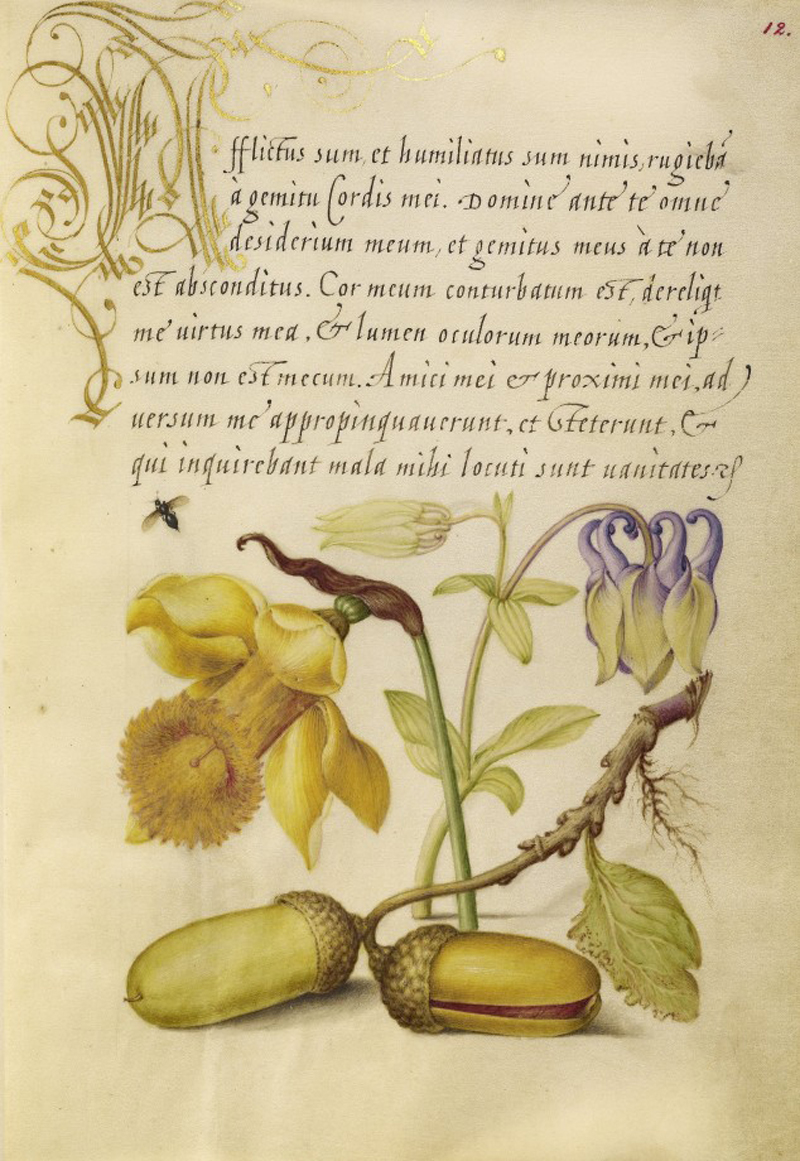 12.
Afflictus sum, et humiliatus sum nimis, rugiebā
à gemitu Cordis mei. Domine ante te omne
desiderium meum, et gemitus meus à te non
est absconditus. Cor meum conturbatum est, dereliqt
me uirtus mea, & lumen oculorum meorum, & ip-
sum non est mecum. Amici mei & proximi mei, ad
uersum me appropinquauerunt, et steterunt, &
qui inquirebant mala mihi locuti sunt uanitates